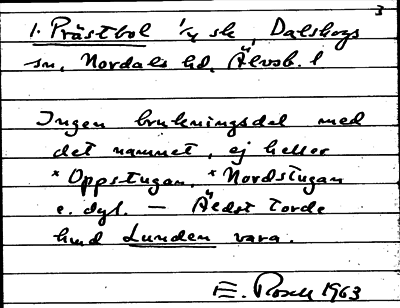 3
1. Prästbol 1/4 sk, Dalskogs
sn, Nordals hd, Älvsb. l
Ingen brukningsdel med
det namnet, ej heller
* Oppstugan, * Nordstugan
e. dyl. — Äldst torde
hmd Lunden vara.
E. Rosell 1963